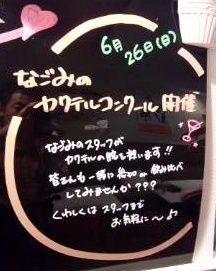 6月26日(日)
なごみの
カクテルコンクール開催
なごみのスタッフが
カクテルの腕を競います!!
皆さんも一緒に 参加 or 飲み比べ
してみませんか???
くわしくは スタッフまで
お気軽に〜♪